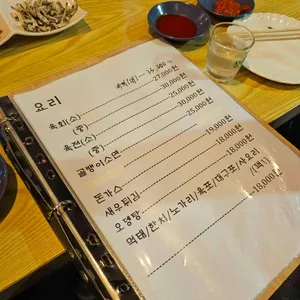 요리
육회(대) 36,000원
육회(소)-----27,000원
(중)-----30,000원
육전(소)-----25,000원
(중)-----30,000원
골뱅이소면-----25,000원
돈가스-----19,000원
새우튀김-----18,000원
오뎅탕-----18,000원
먹태/한치/노가리/육포/대구포/사요리(택1)
-----18,000원